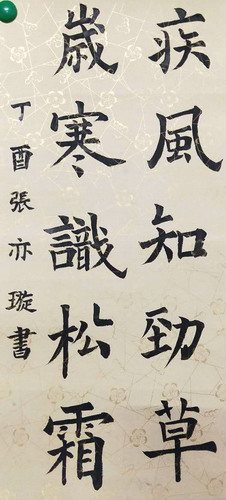 疾風知勁草
歲寒識松霜
丁酉張亦璇書